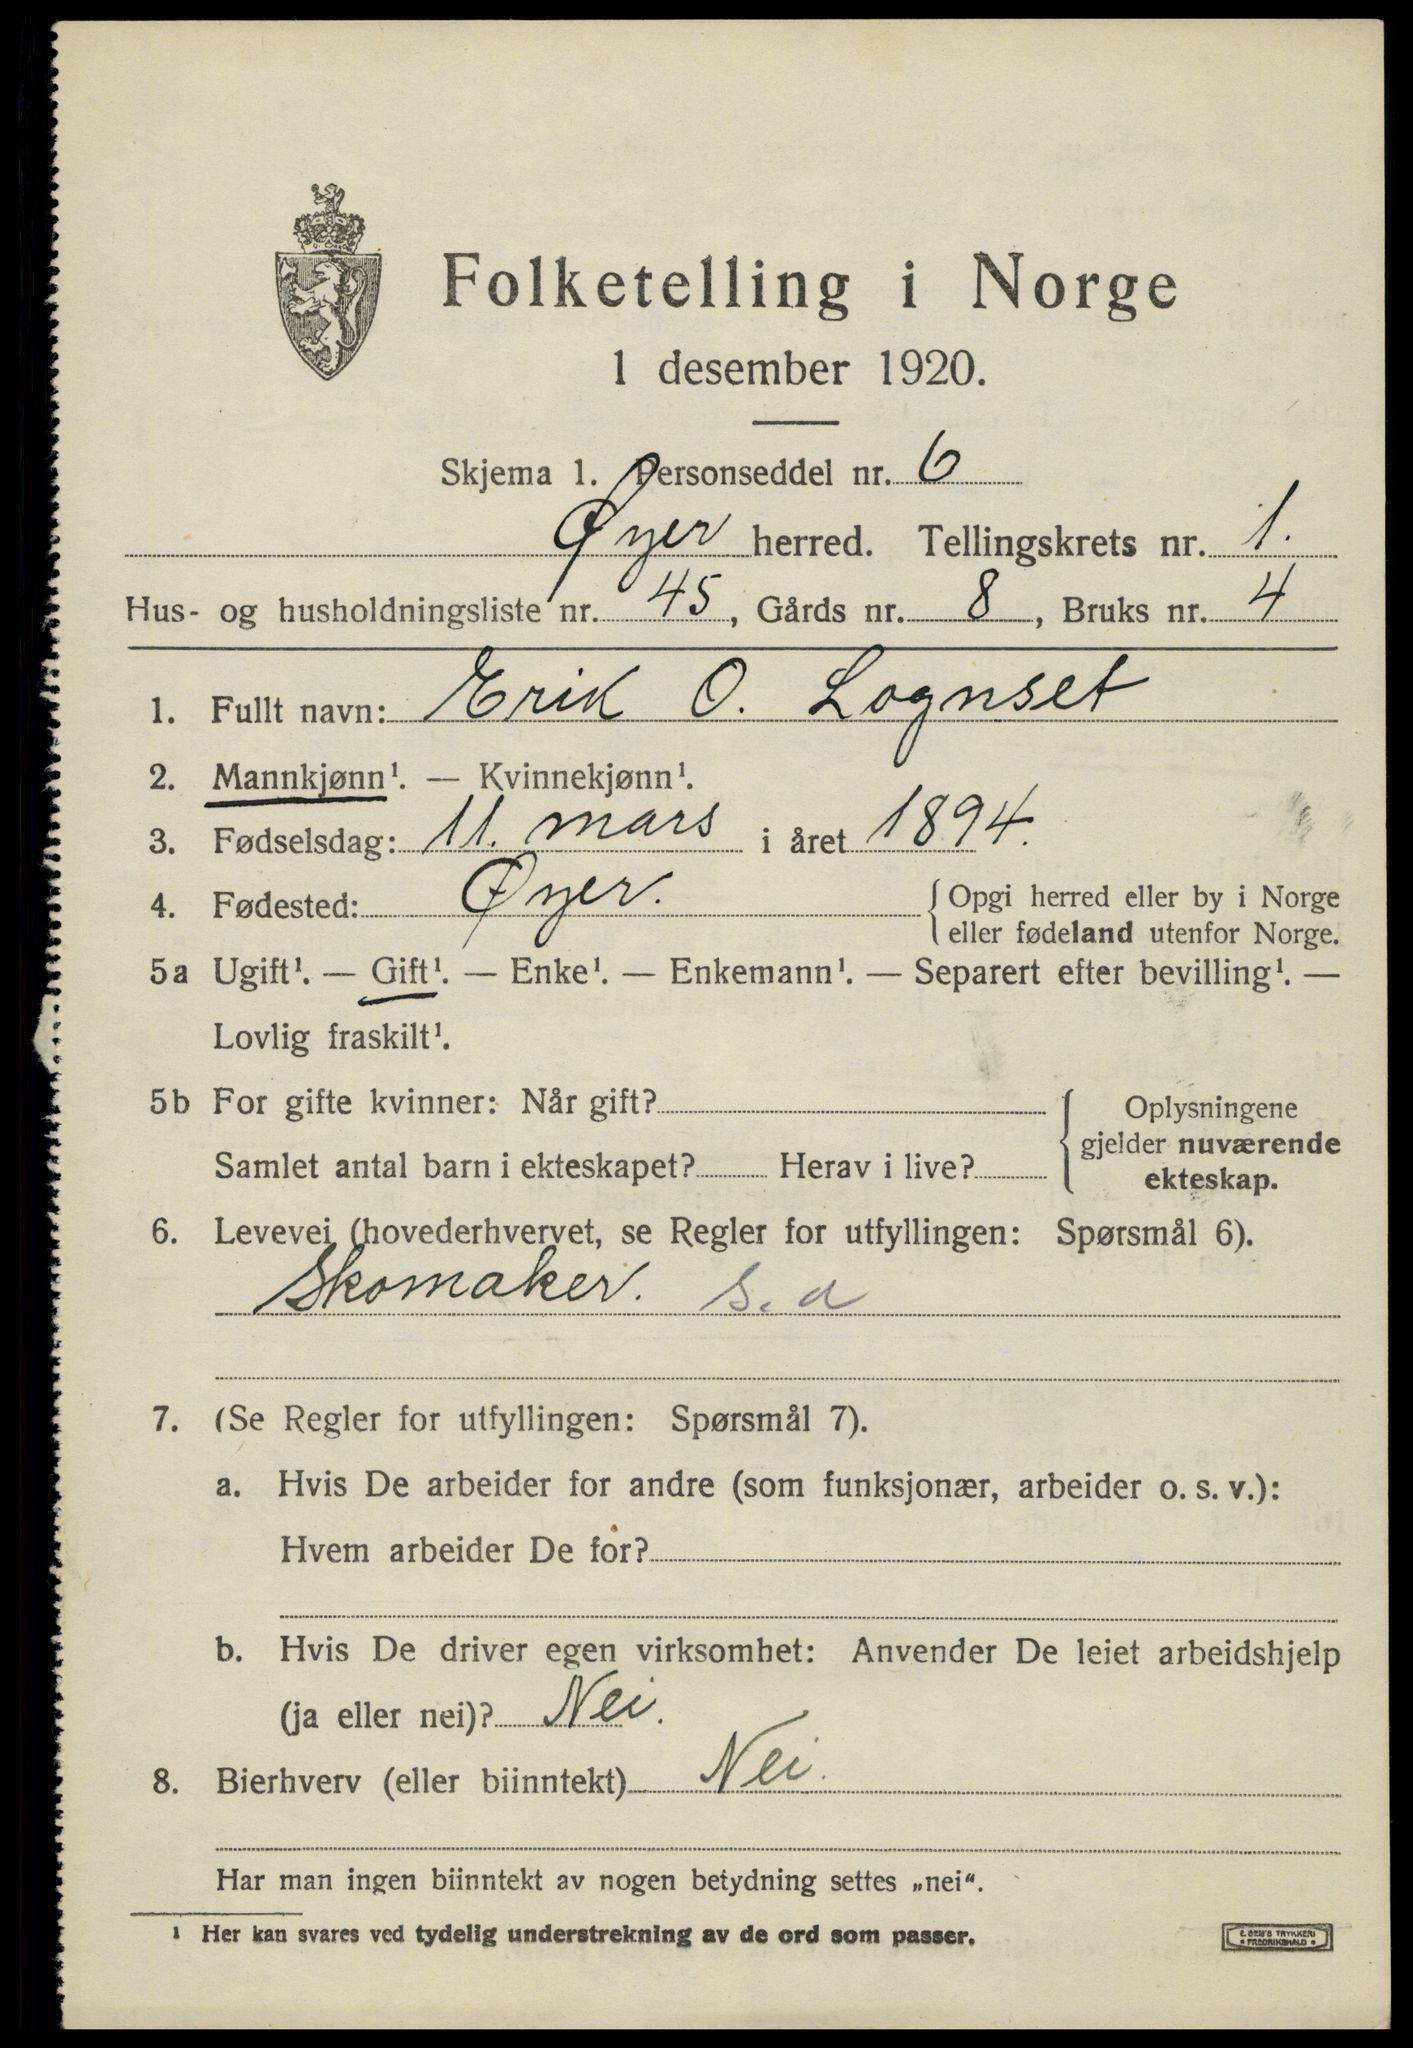 Folketelling i Norge
1 desember 1920.
Skjema 1. Personseddel nr. 6
Øyer herred. Tellingskrets nr. 1.
Hus- og husholdningsliste nr. 45, Gårds nr. 8, Bruks nr. 4
1. Fullt navn: Erik O. Lognset
2. Mannkjønn¹. — Kvinnekjønn¹.
3. Fødselsdag: 11. mars i året 1894.
4. Fødested: Øyer. { Opgi herred eller by i Norge
eller fødeland utenfor Norge.
5a Ugift¹. — Gift¹. — Enke¹. — Enkemann¹. — Separert efter bevilling¹. —
Lovlig fraskilt¹.
5b For gifte kvinner: Når gift?
Samlet antal barn i ekteskapet? Herav i live?
{ Oplysningene
gjelder nuværende
ekteskap.
6. Levevei (hovederhvervet, se Regler for utfyllingen: Spørsmål 6).
Skomaker. S. a
7. (Se Regler for utfyllingen: Spørsmål 7).
a. Hvis De arbeider for andre (som funksjonær, arbeider o. s. v.):
Hvem arbeider De for?
b. Hvis De driver egen virksomhet: Anvender De leiet arbeidshjelp
(ja eller nei)? Nei.
8. Bierhverv (eller biinntekt) Nei.
Har man ingen biinntekt av nogen betydning settes „nei“.
¹ Her kan svares ved tydelig understrekning av de ord som passer.
E. SEM'S TRYKKERI
• FREDRIKSHALD •